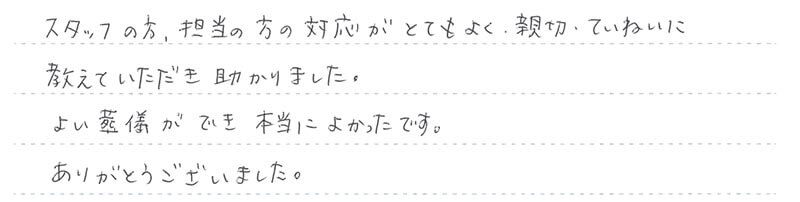 スタッフの方、担当の方の対応がとてもよく、親切、ていねいに
教えていただき助かりました。
よい葬儀ができ本当によかったです。
ありがとうございました。